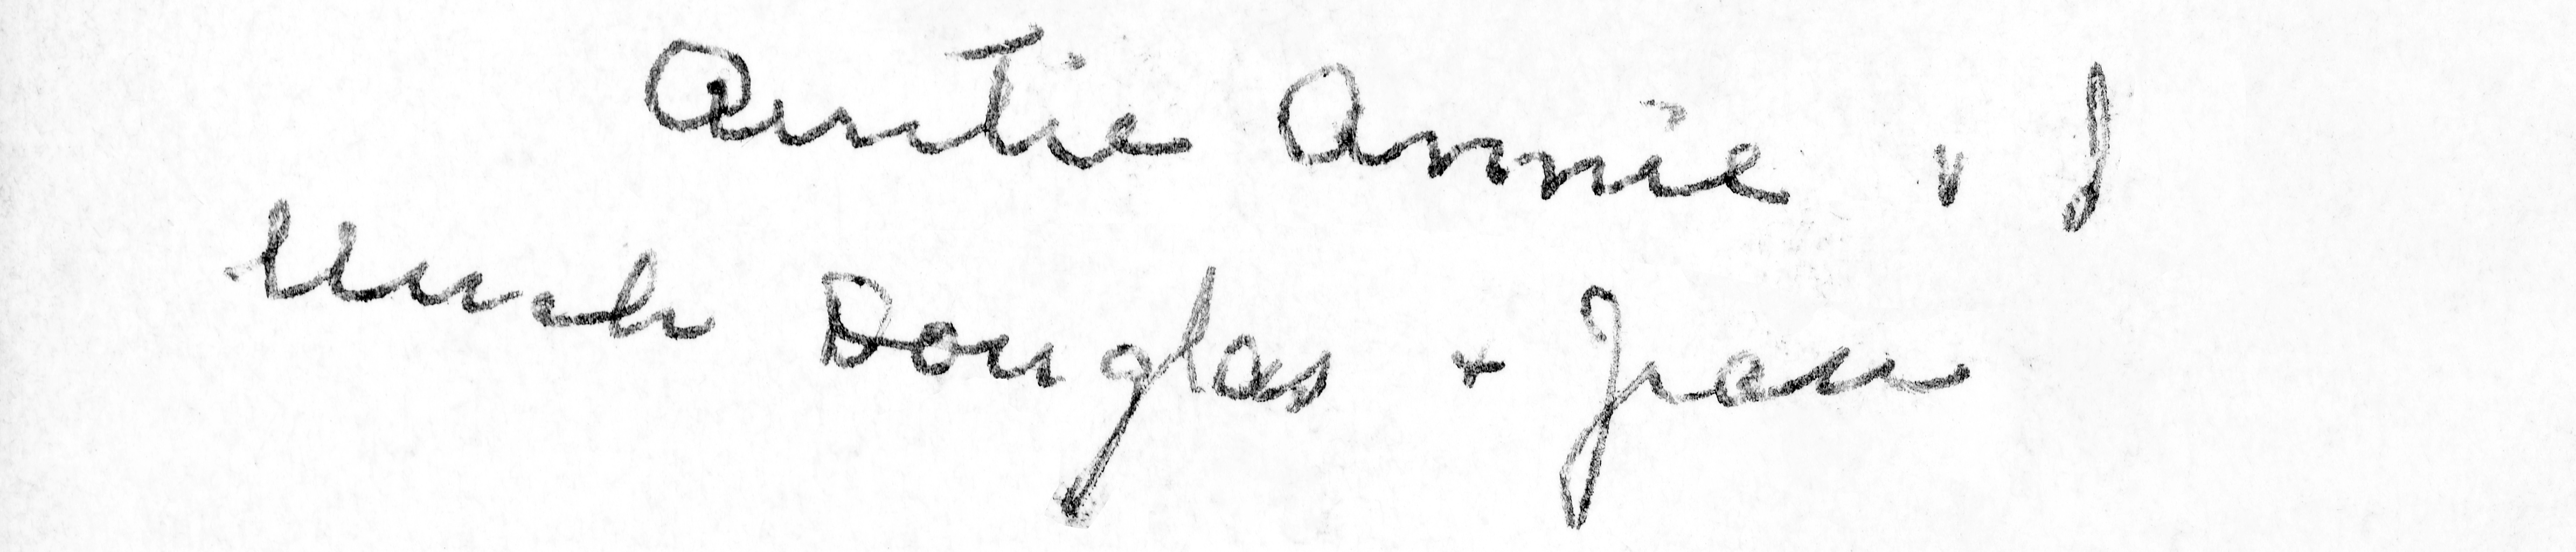 Auntie Annie + I
Uncle Douglas + Jean